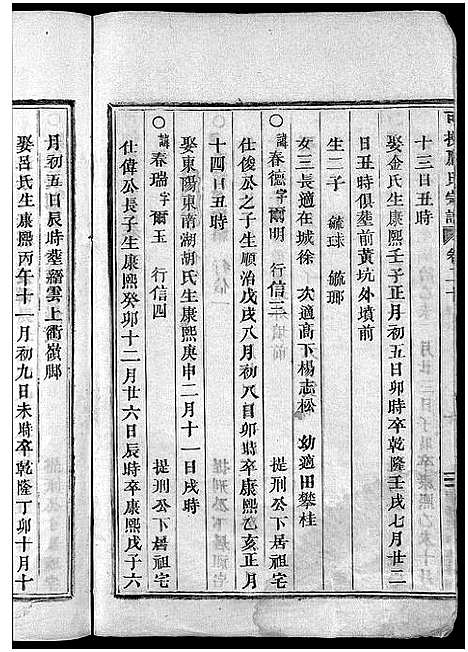 十三日丑時
娶金氏生康熙壬子正月初五日卯時卒乾隆壬戌七月廿二
日丑時俱塟前黄坑外墳前
生二子 毓球 毓瑯
女三長適在城徐 次適高下楊志松 幼適田攀桂
○諱春德字爾明 行信三 提刑公下居祖宅
仕俊公之子生順治戊戌八月初八日卯時卒康熙乙亥正月
十四日丑時
娶東陽東南湖胡氏生康熙庚申二月十一日戌時
○諱春瑞字爾玉 行信四 提刑公下居祖宅
仕偉公長子生康熙癸卯十二月廿六日辰時卒康熙戊子六
月初五日辰時塟縉雲上衢嶺脚
娶呂氏生康熙丙午十一月初九日未時卒乾隆丁卯十月十